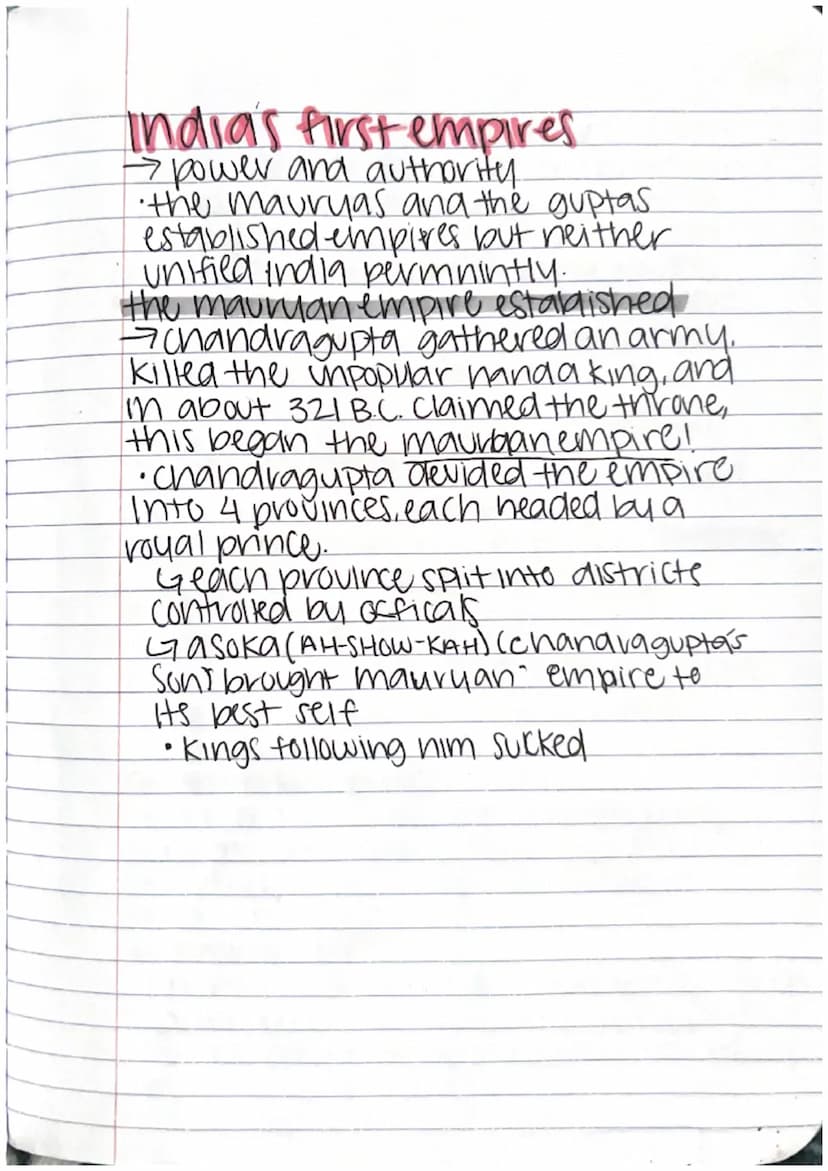 India's first empires
→ power and authority
• the mauryas and the guptas
established empires but neither
unified india permnintly.
the mauryan empire established
→ chandragupta gathered an army,
killed the unpopular nanda king, and
in about 321 B.C. claimed the throne,
this began the mauryan empire!
• chandragupta devided the empire
into 4 provinces, each headed by a
royal prince.
↳ each province split into districts
controlled by officals
↳ asoka (AH-SHOW-KAH) (chandragupta's
son) brought mauryan empire to
its best self
• kings following him sucked